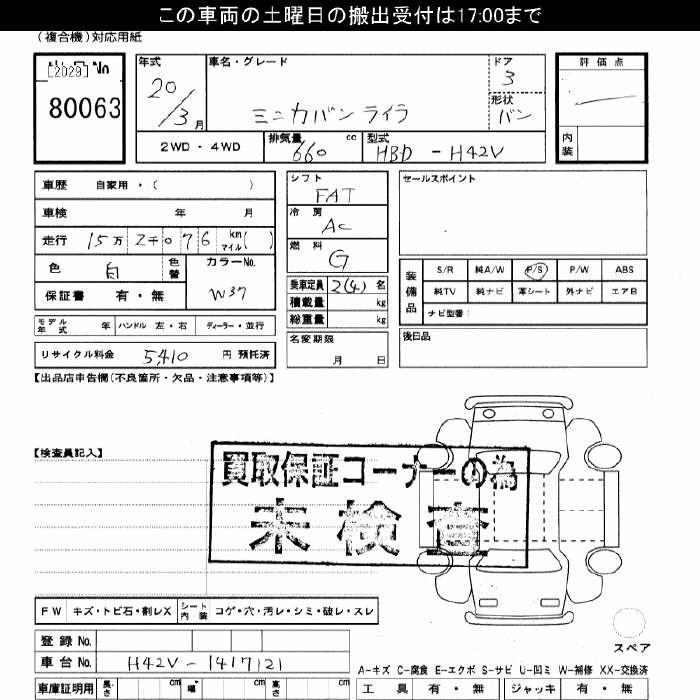 この車両の土曜日の搬出受付は17:00まで
(複合機)対応用紙
[2029] No
80063
年式
20/3月
車名・グレード
ミニカバン ライラ
ドア
3
形状
バン
評価点
内装
2WD・4WD
排気量 660 cc
型式 HBD - H42V
車歴 自家用・( )
車検 年 月
走行 15万2千076 km マイル( )
色 白 色替
カラーNo. W37
保証書 有・無
モデル年式 年 ハンドル 左・右 ディーラー・並行
リサイクル料金 5,410 円 預託済
シフト FAT
冷房 AC
燃料 G
乗車定員 2(4) 名
積載量 kg
総重量 kg
名変期限 月 日
セールスポイント
装備品
S/R 純A/W P/S P/W ABS
純TV 純ナビ 革シート 外ナビ エアB
ナビ型番：
後日品
【出品店申告欄(不良箇所・欠品・注意事項等)】
【検査員記入】
買取保証コーナーの為
未検査
FW キズ・トビ石・割レX シート内装 コゲ・穴・汚レ・シミ・破レ・スレ
登録No.
車台No. H42V-1417121
車庫証明用 長さ cm 幅 cm 高さ cm
スペア
A-キズ C-腐食 E-エクボ S-サビ U-凹ミ W-補修 XX-交換済
工具 有・無 ジャッキ 有・無